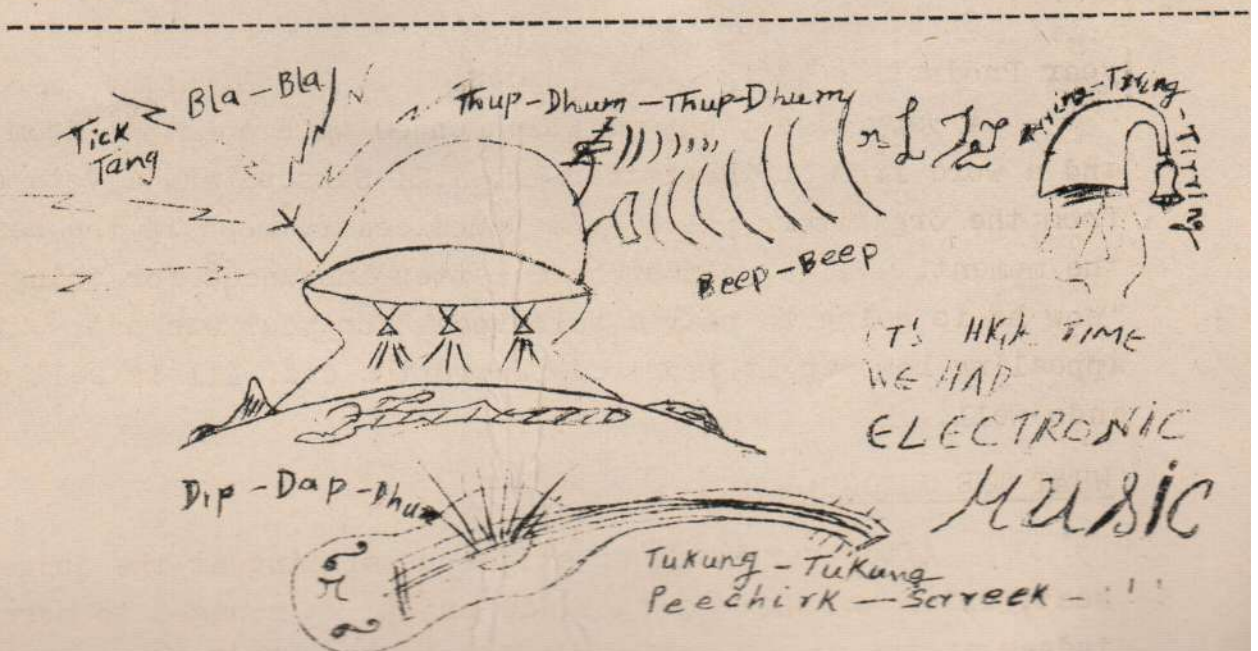 Tick
Tang
Bla-Bla
Thup-Dhum-Thup-Dhum
Tring-Tring-Tirring
Beep-Beep
IT'S HIGH TIME
WE HAD
ELECTRONIC
MUSIC
Dip-Dap-Dhum
Tukung-Tukung
Peechirk—Screek-!!